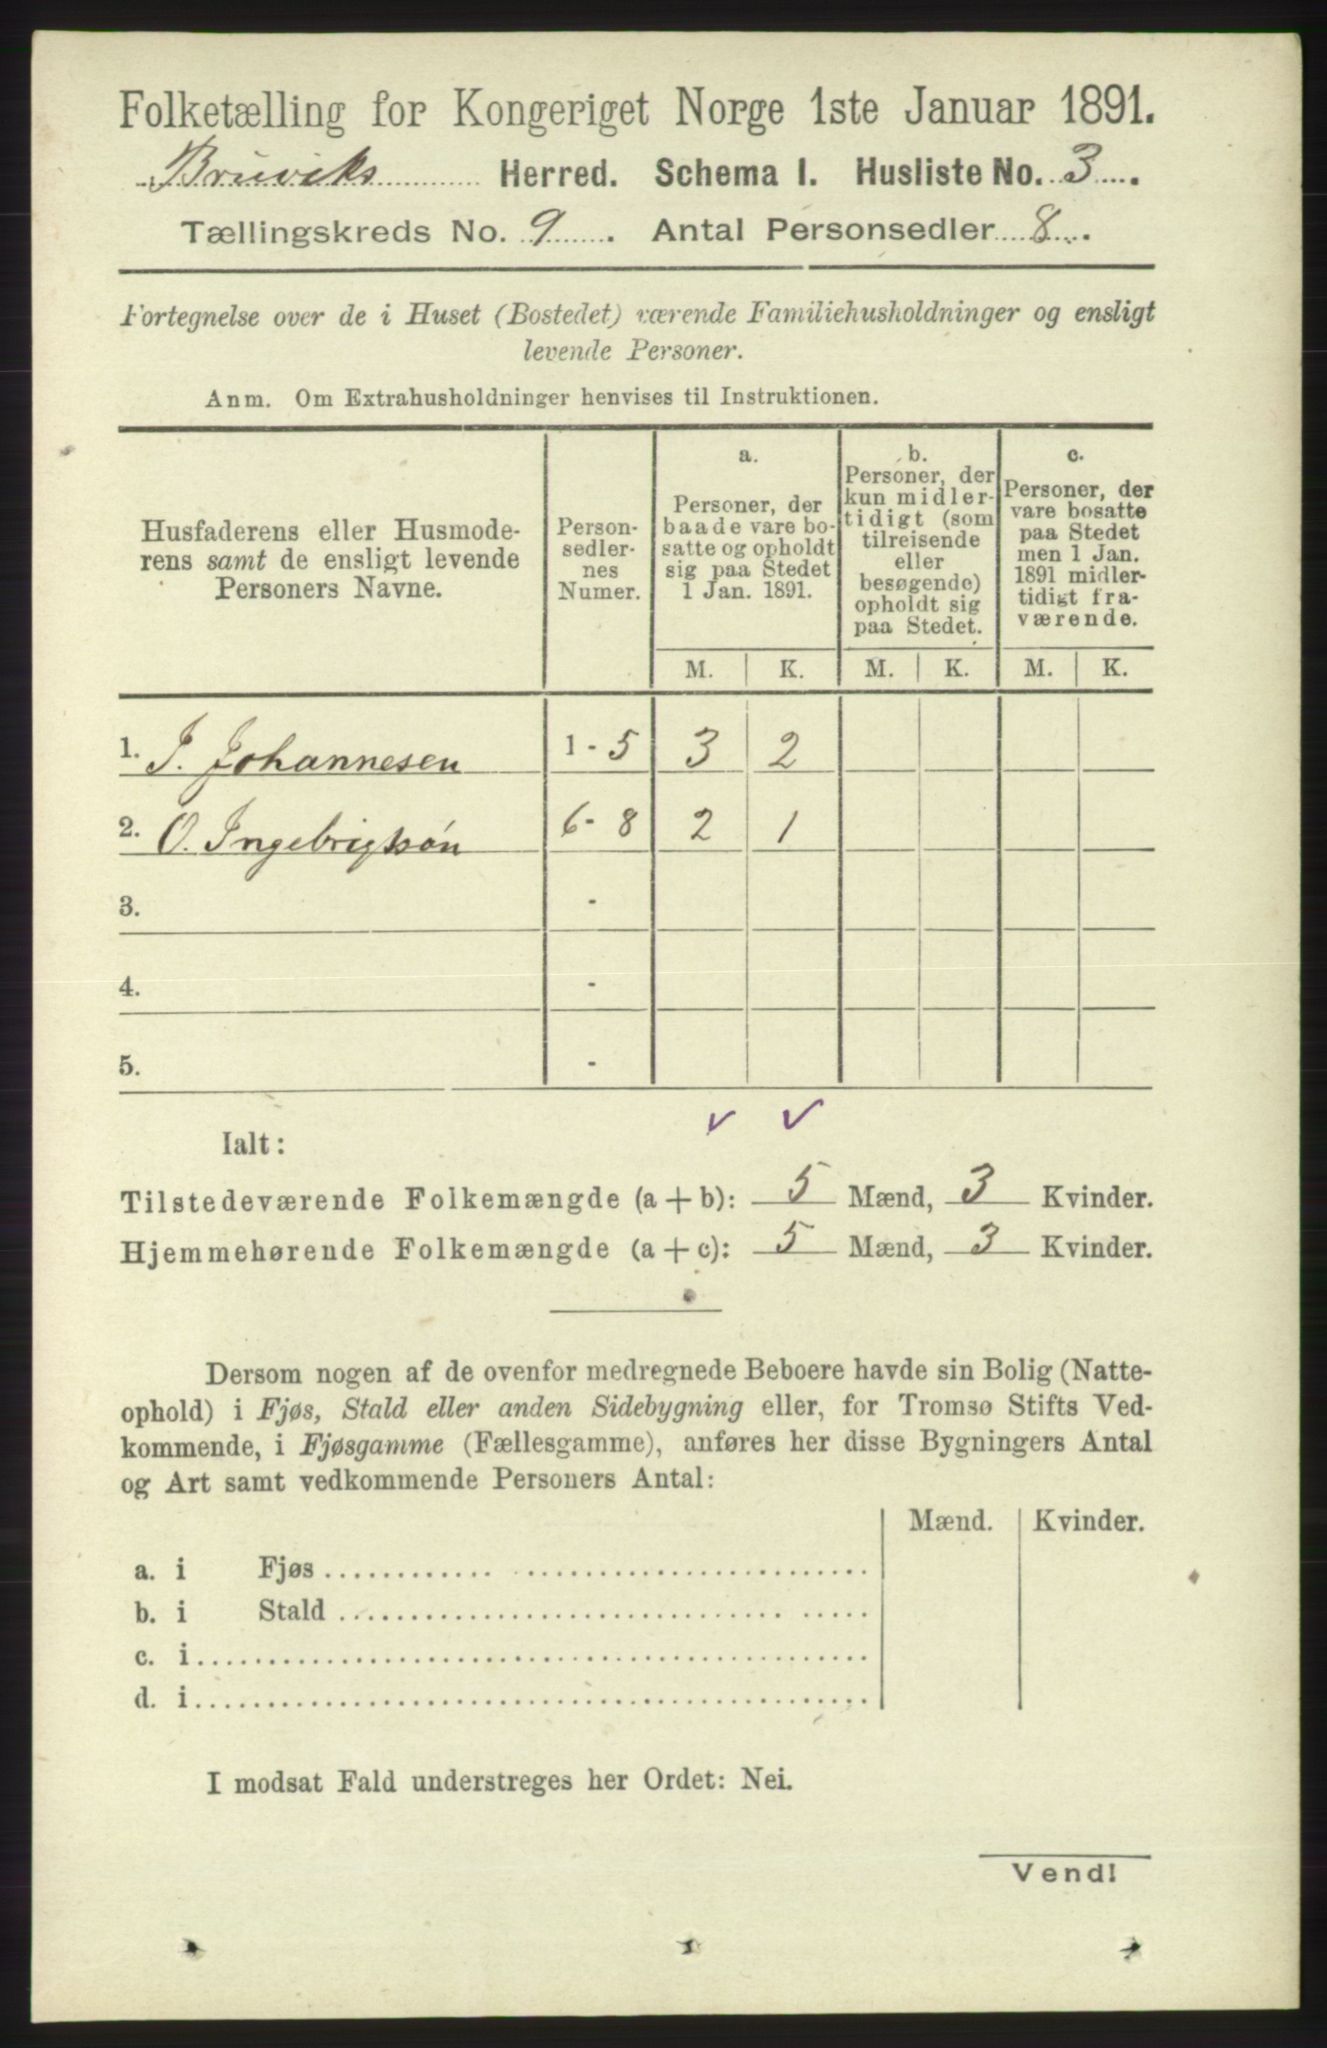 Folketælling for Kongeriget Norge 1ste Januar 1891.
Bruviks Herred. Schema I. Husliste No. 3.
Tællingskreds No. 9. Antal Personsedler 8.
Fortegnelse over de i Huset (Bostedet) værende Familiehusholdninger og ensligt
levende Personer.
Anm. Om Extrahusholdninger henvises til Instruktionen.
Husfaderens eller Husmode-
rens samt de ensligt levende
Personers Navne.
Person-
sedler-
nes
Numer.
a.
Personer, der
baade vare bo-
satte og opholdt
sig paa Stedet
1 Jan. 1891.
b.
Personer, der
kun midler-
tidigt (som
tilreisende
eller
besøgende)
opholdt sig
paa Stedet.
c.
Personer, der
vare bosatte
paa Stedet
men 1 Jan.
1891 midler-
tidigt fra-
værende.
M. K. M. K. M. K.
1. J. Johannesen 1 - 5 3 2
2. O. Ingebrigtsøn 6 - 8 2 1
3. -
4. -
5. -
Ialt:
Tilstedeværende Folkemængde (a + b): 5 Mænd, 3 Kvinder.
Hjemmehørende Folkemængde (a + c): 5 Mænd, 3 Kvinder.
Dersom nogen af de ovenfor medregnede Beboere havde sin Bolig (Natte-
ophold) i Fjøs, Stald eller anden Sidebygning eller, for Tromsø Stifts Ved-
kommende, i Fjøsgamme (Fællesgamme), anføres her disse Bygningers Antal
og Art samt vedkommende Personers Antal:
Mænd. Kvinder.
a. i Fjøs
b. i Stald
c. i
d. i
I modsat Fald understreges her Ordet: Nei.
Vend!